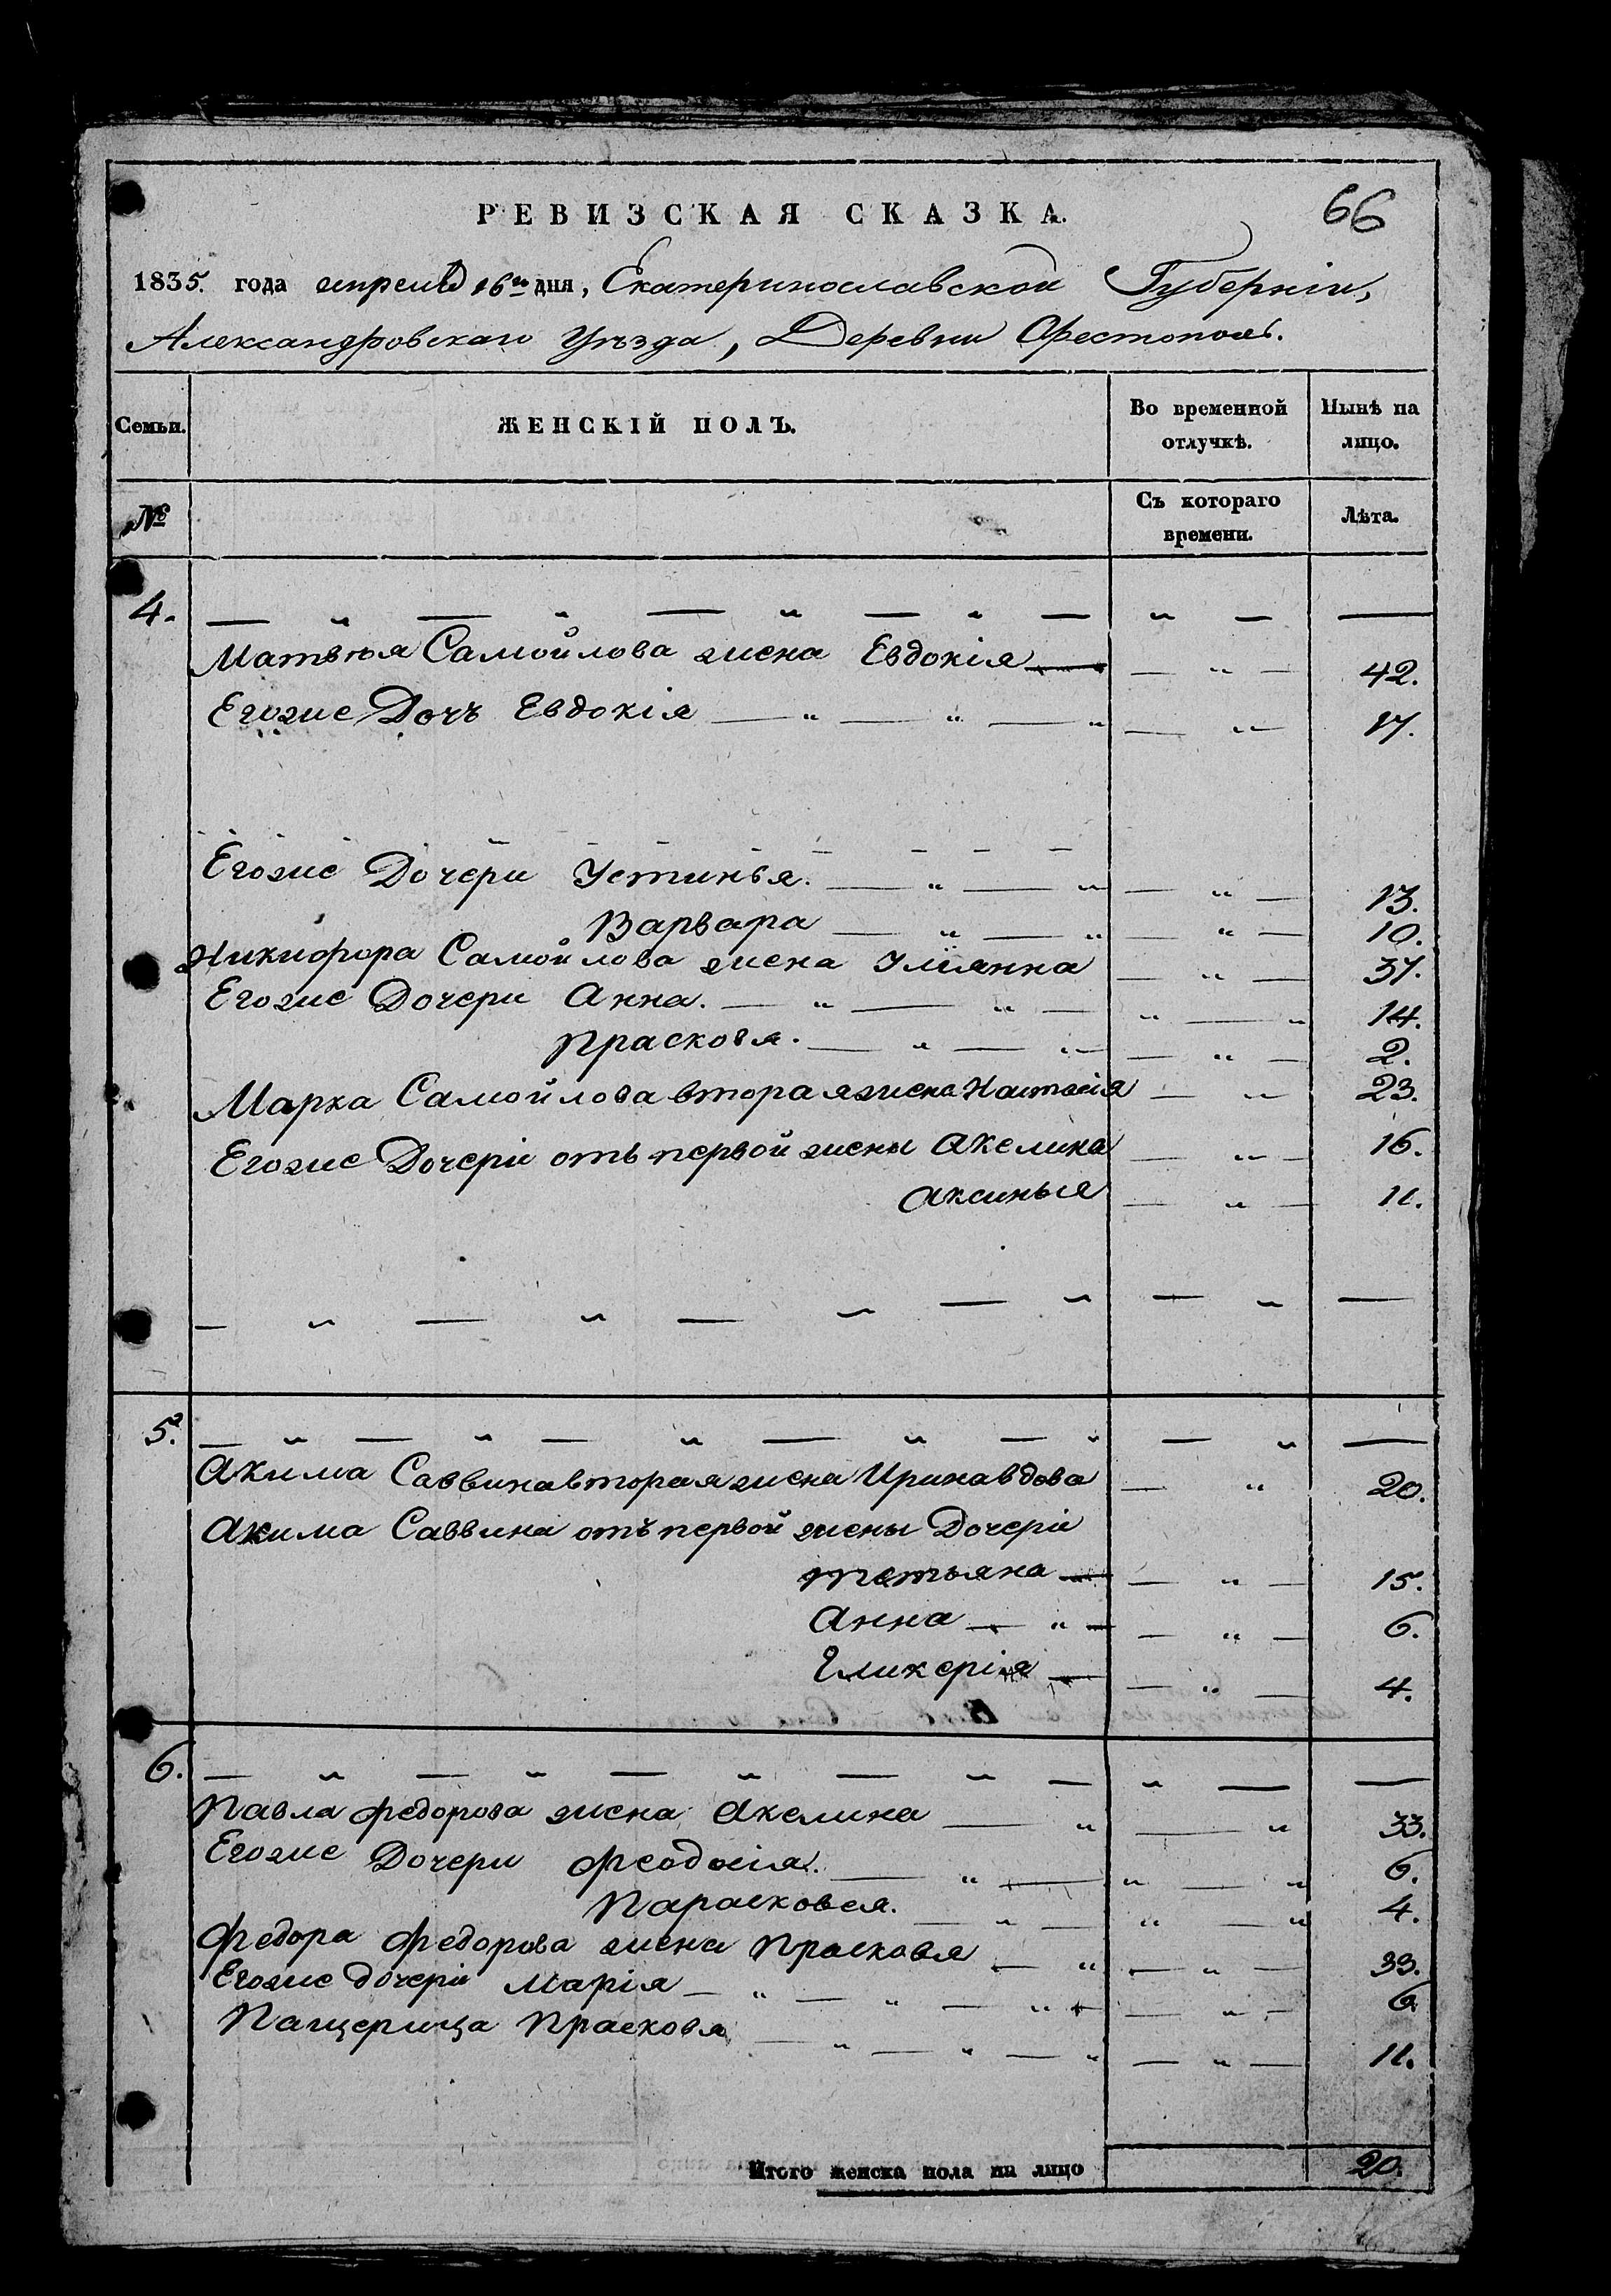 РЕВИЗСКАЯ СКАЗКА.
66
1835. года апреля 16го дня, Екатеринославской Губерніи,
Александровскаго Уѣзда, Деревни Орестополь.
Семьи.
ЖЕНСКІЙ ПОЛЪ.
Во временной отлучкѣ.
Нынѣ на лицо.
№
Съ котораго времени.
Лѣта.
4.
Матвѣя Самойлова жена Евдокія — „ — 42.
Егоже Дочъ Евдокія — „ — „ — „ — „ — 17.
Егоже Дочери Устинья. — „ — „ — „ — 13.
Варвара — „ — „ — „ — 10.
Никифора Самойлова жена Улиянна — „ — 37.
Егоже Дочери Анна. — „ — „ — „ — „ 14.
Прасковя. — „ — „ — „ — 2.
Марка Самойлова вторая жена Настасія — „ 23.
Егоже Дочери отъ первой жены Акелина — „ — 16.
Аксинья — „ — 11.
5.
Акима Саввина вторая жена Ирина вдова — „ 20.
Акима Саввина отъ первой жены Дочери
Татьяна — „ — 15.
Анна — „ — — „ — 6.
Гликерія — — „ — 4.
6.
Павла Федорова жена Акелина — „ — „ 33.
Егоже Дочери Феодосія. — „ — „ — „ 6.
Парасковея. — „ — „ — „ 4.
Федора Федорова жена Прасковя — „ — „ — 33.
Егоже дочери Марія — „ — „ — „ — „ — 6.
Пащерица Прасковя — „ — „ — „ — „ — 11.
Итого женска пола на лицо 20.